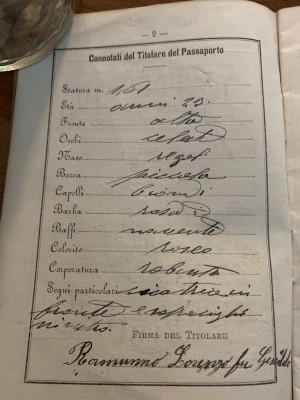 — 2 —
Connotati del Titolare del Passaporto
Statura m. 1,61
Età anni 23
Fronte alta
Occhi celesti
Naso regol
Bocca piccola
Capelli biondi
Barba rasa
Baffi nascente
Colorito roseo
Corporatura robusta
Segni particolari cicatrice in
fronte e sopraciglio
FIRMA DEL TITOLARE
Ramunno Lorenzo fu